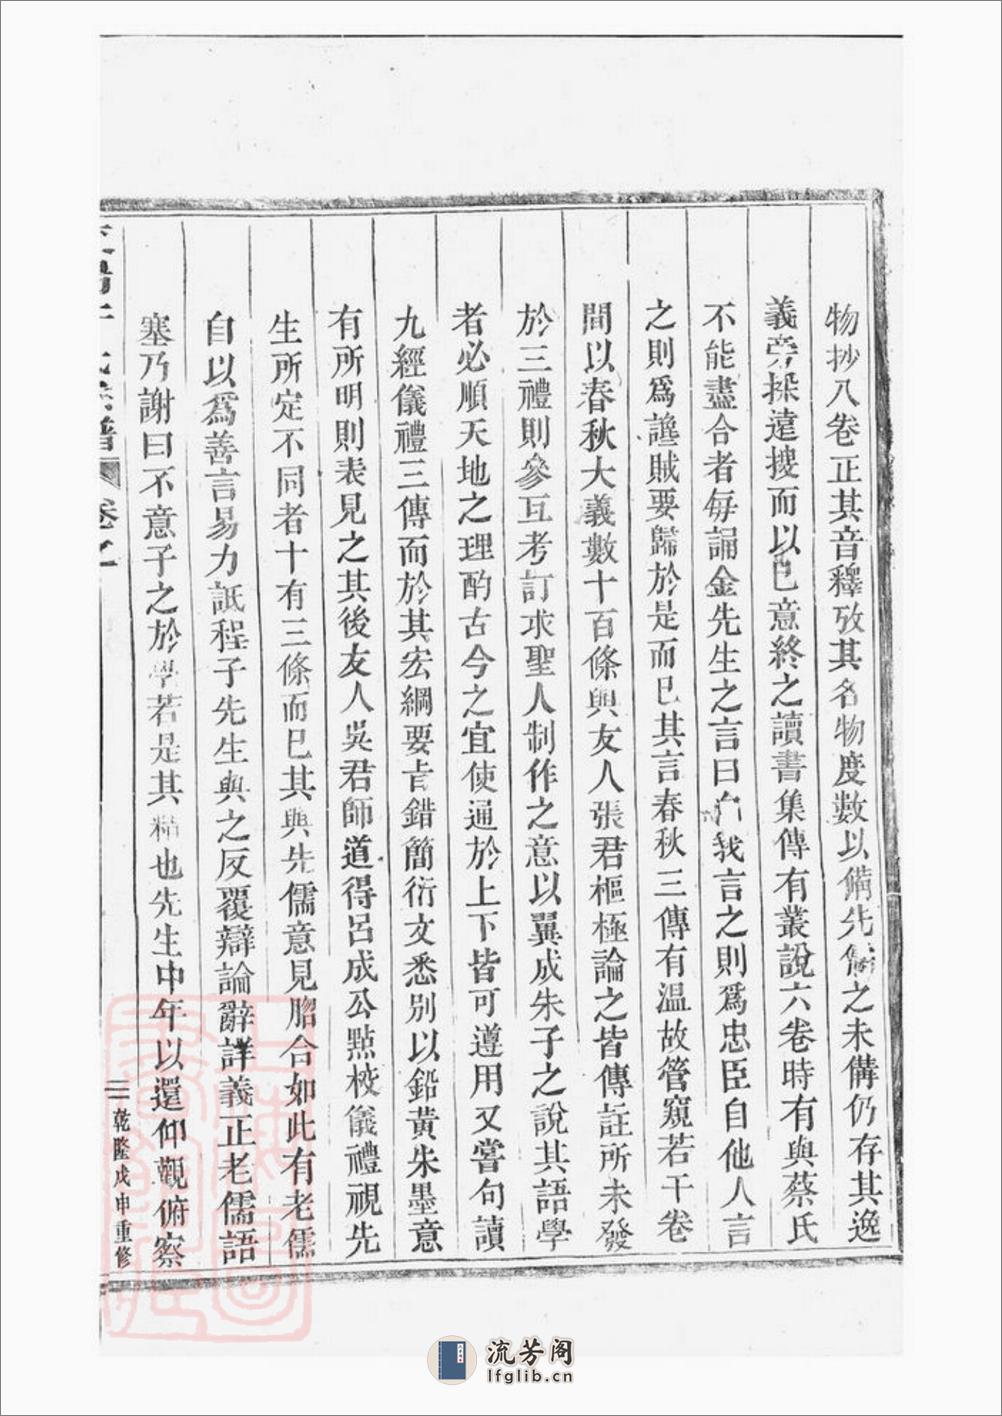 物抄八卷正其音釋攷其名物度數以備先儒之未備仍存其逸
義旁採遠搜而以已意終之讀書集傳有叢說六卷時有與蔡氏
不能盡合者每誦金先生之言曰自我言之則爲忠臣自他人言
之則爲讒賊要歸於是而已其言春秋三傳有溫故管窺若干卷
間以春秋大義數十百條與友人張君樞極論之皆傳註所未發
於三禮則參互考訂求聖人制作之意以翼成朱子之說其語學
者必順天地之理酌古今之宜使通於上下皆可遵用又嘗句讀
九經儀禮三傳而於其宏綱要旨錯簡衍文悉別以鉛黃朱墨意
有所明則表見之其後友人吳君師道得呂成公點校儀禮視先
生所定不同者十有三條而已其與先儒意見脗合如此有老儒
自以爲善言易力詆程子先生與之反覆辯論辭詳義正老儒語
塞乃謝曰不意子之於學若是其精也先生中年以還仰觀俯察
譜 卷之 三 乾隆戊申重修
流芳阁
lfglib.cn